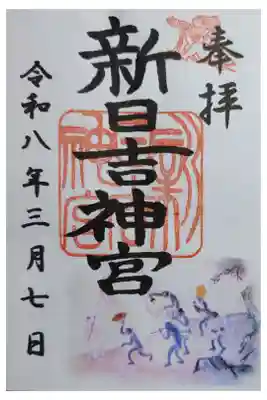 奉拝
新日吉神宮
令和八年三月七日